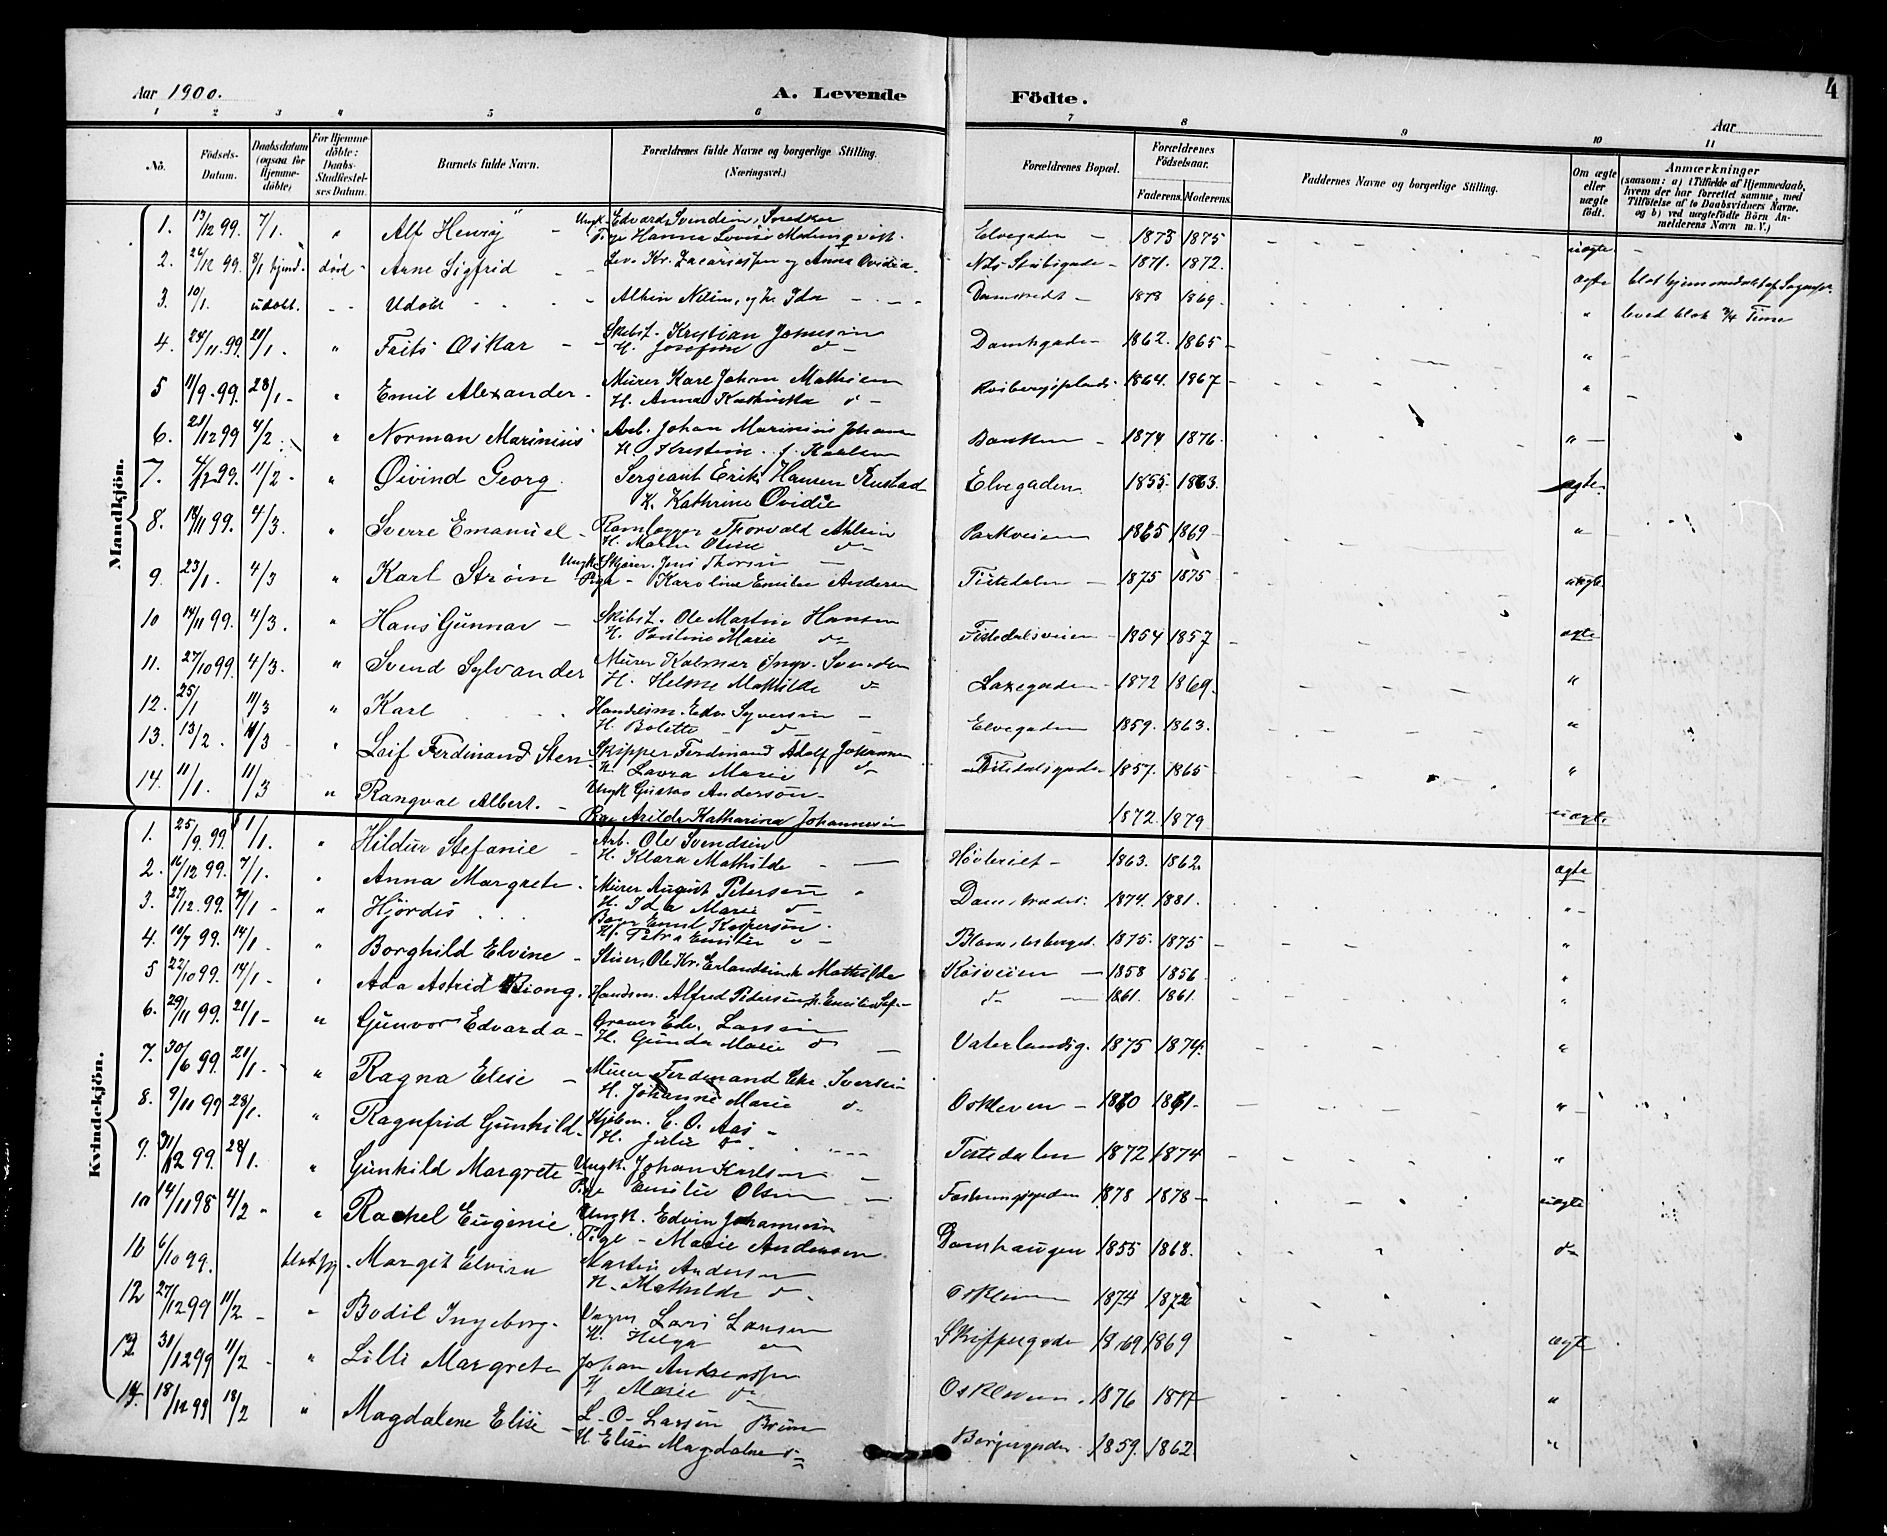 4
Aar 1900.
A. Levende Födte.
Aar
1 2 3 4 5 6 7 8 9 10 11
No. Födsels-Datum. Daabsdatum (ogsaa for Hjemme-döbte) For Hjemme-döbte: Daabs-Stadfæstel-ses Datum. Barnets fulde Navn. Forældrenes fulde Navne og borgerlige Stilling. (Næringsvei.) Forældrenes Bopæl. Forældrenes Födselsaar. Faderens. Moderens. Faddernes Navne og borgerlige Stilling. Om ægte eller uægte födt. Anmærkninger (saasom: a) i Tilfælde af Hjemmedaab, hvem der har forrettet samme, med Tilföielse af to Daabsvidners Navne, og b) ved uægtefödte Börn An-melderens Navn m. V.)
Mandkjön.
1. 13/12 99. 7/1. " Alf Henry Ungk. Edvard Svendsen, Snedker Elvegaden 1873 1875 uægte
Pige Hanna Lovise
2. 26/12 99. 8/1 hjemd. död Arne Sigfrid Kr. Zacariassen og Anna Ovidia 1871. 1872. ægte
3. 10/1. udöbt. Udöbt Albin Nilsen, og H. Ida Damstrædt 1878 1869. " leved blot 3/4 Time
4. 24/11. 99. 21/1. " Frits Oskar Skibst. Kristian Johnsen Damhgade 1862. 1865 "
H. Josefine do
5 11/9. 99. 28/1 " Emil Alexander Murer Karl Johan Mathisen 1864. 1867 "
H. Anna Kathinka do
6. 21/12 99 4/2. " Norman Marinius Arb. Johan Marinius Johans Banken 1874 1876. "
H. Kristine f. Karlsen
7. 99. 11/2 " Øivind Georg. Sergeant Erik Hansen Rustad Elvegaden 1855. 1863. ægte
H. Kathrine Ovidie
8. 18/11 99. 4/3. " Sverre Emanuel Thorvald Ahlsen Parkveien 1865 1869 "
H. Maren Olsine do
9. 23/1. 4/3 " Karl Strøm Ungk. Skjører. Jens Thorsen Tistedalen 1875 1875 uægte
Pige Karoline Emilie Andersen
10 14/11 99. 4/3. " Hans Gunnar Skibst. Ole Martin Hansen Tistedalsveien 1854 1857 ægte
H. Pauline Marie do
11. 27/10 99. 4/3. " Svend Sylvander Murer Kalmar Ingv. Svendsen Laxegaden 1872 1869. "
H. Helene Mathilde do
12. 25/1 11/3 " Karl Handelsm. Edv. Syversen Elvegaden 1859. 1863. "
H. Bolette do
13. 13/2. 11/3 " Leif Ferdinand Sten Skipper Ferdinand Adolf Johannsen Tistedalsgaden 1857. 1865 "
H. Laura Marie do
14. 11/1. 11/3 " Rangval Albert. Ungk Gustav Andersen 1872. 1879 uægte
Pige Arilda Katharina Johannesen
Kvindekjön.
1. 25/9. 99. 1/1. " Hildur Stefanie Arb. Ole Svendsen Høvleriet 1863. 1862. ægte
H. Klara Mathilde
2. 16/12 99. 7/1. " Anna Margrete Murer August Petersen 1874. 1881. "
H. Ida Marie do
3. 27/12. 99. 7/1 " Hjördis Bager Emil Kaspersen. 1875. 1875 "
H. Petra Emilie do
4. 10/7 99. 14/1 " Borghild Elvine Ole Kr. Erlandsen H. Mathilde Rösveien 1858 1856 "
5 22/10 99. 14/1 " Ada Astrid Kiong. Handsm. Alfred Pedersen, H. Emilie do 1861. 1861. "
6. 29/11 99. 21/1 " Gunvor Edvarda Graver Edv. Larsen Vaterlandsg. 1875 1874. "
H. Gunda Marie do
7. 30/6 99. 21/1 " Ragna Elise Murer Ferdinand Chr. Iversen Oskleven 1860 1861 "
H. Johanne Marie do
8. 9/11 99 28/1. " Ragnfrid Gunhild Kjøbm. C. O. Aas Tistedalen 1872 1874 "
H. Julie do
9. 31/12 99. 28/1. " Gunhild Margrete Ungk. Johan Karlsen Fæstningsgaden 1878 1878 uægte
Pige Emilie Olsen
10 14/11 98 4/2 " Rachel Eugenie Ungk. Edvin Johannesen Damhaugen 1855 1868. do
Pige Marie Andersen
6/10 99. Margit Elvira Martin Andersen Oskleven 1874 1872
H. Mathilde do
12 27/12 99 11/2 " Bodil Ingeborg Lars Larsen Skippergade 1869 1869 ægte
H. Helga do
31/12 99 11/2 " Lilli Margrete Johan Andreassen Oskleven 1876 1877 "
H Marie do
14. 18/12 99 18/2 " Magdalene Elise L. O. Larsen Bruun Borgergaden 1859. 1862. "
H. Elise Magdalene do